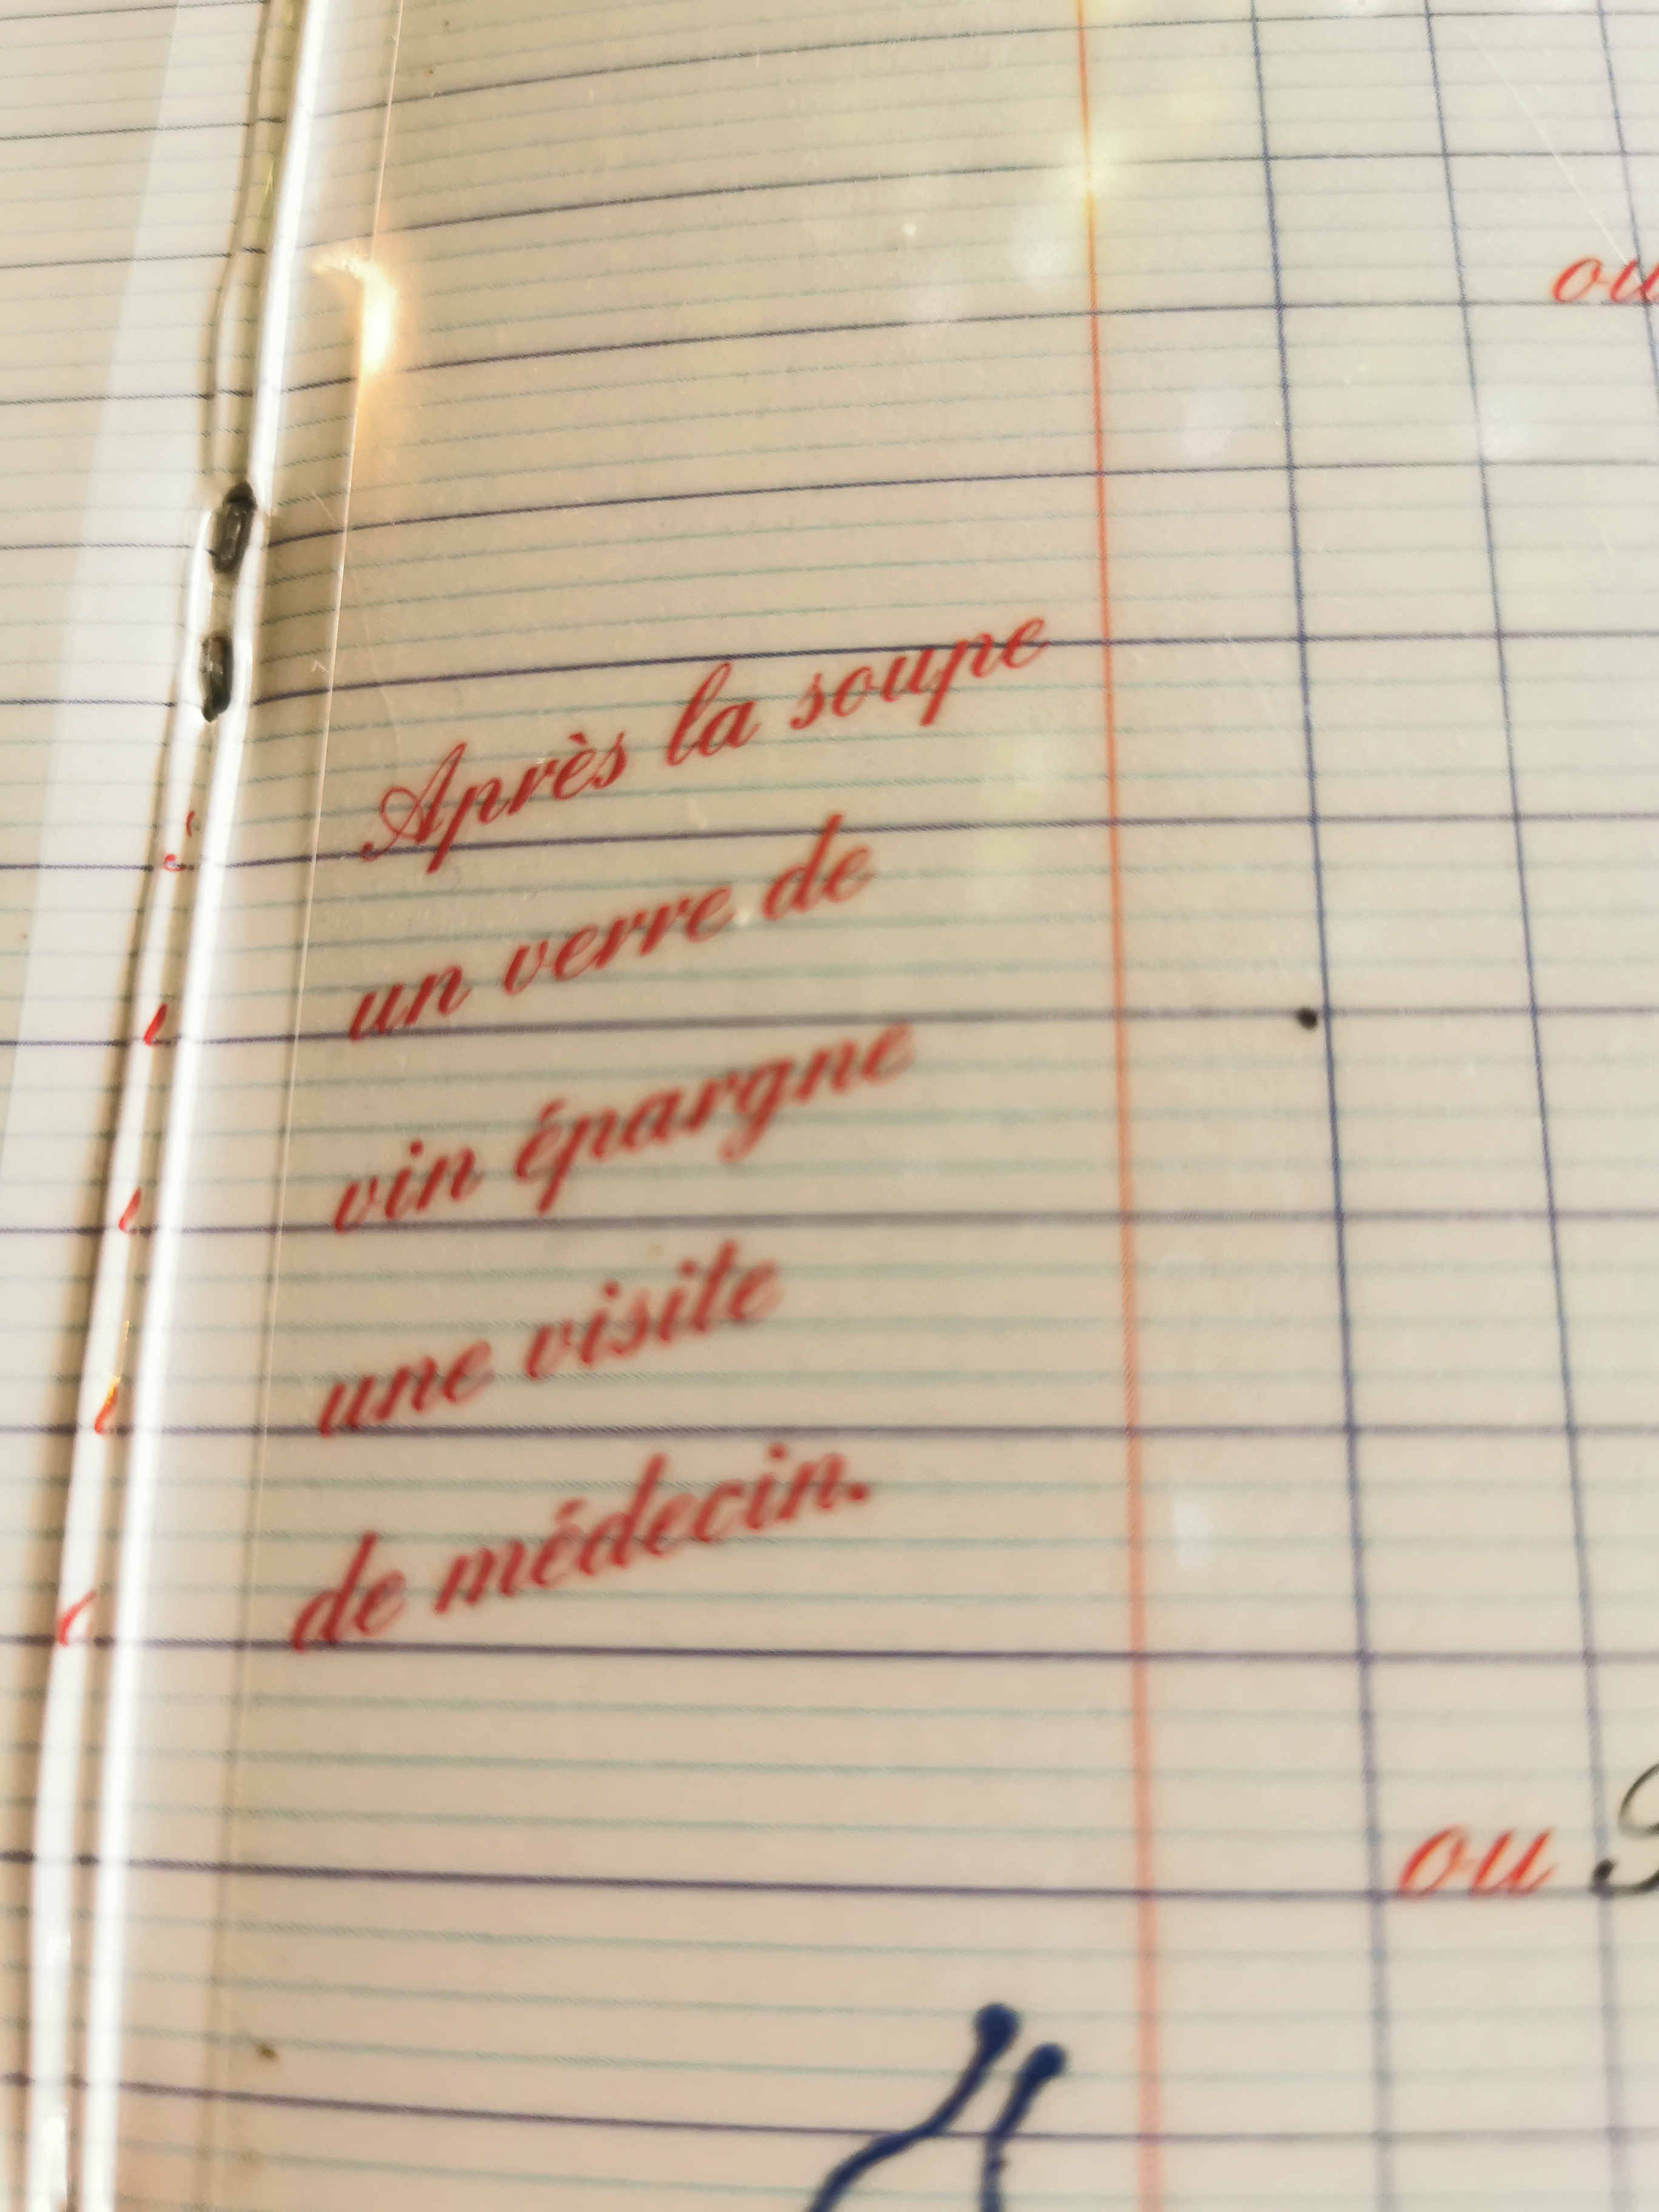 ou
Après la soupe
un verre de
vin épargne
une visite
de médecin.
ou